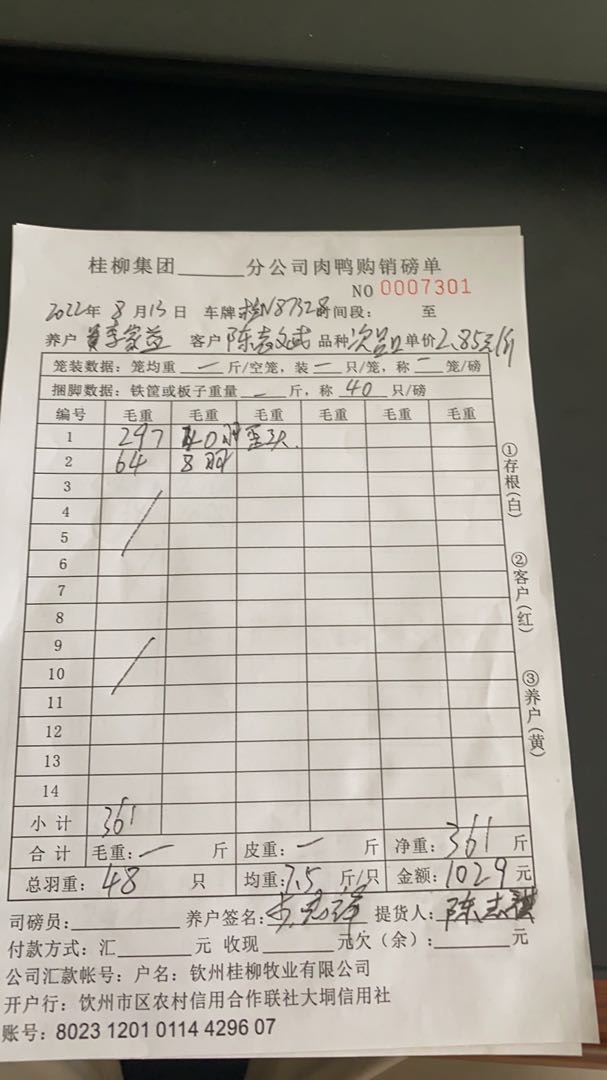 桂柳集团______分公司肉鸭购销磅单
NO 0007301
2022年 8 月 13 日 车牌 桂N87328 时间段: 至
养户 李家益 客户 陈志斌 品种 次品 单价 2.85元/斤
笼装数据: 笼均重 一 斤/空笼, 装 一 只/笼, 称 一 笼/磅
捆脚数据: 铁筐或板子重量 一 斤, 称 40 只/磅
编号 毛重 毛重 毛重 毛重 毛重 毛重
1 297 40羽 歪头.
2 64 8羽
3
4
5
6
7
8
9
10
11
12
13
14
小计 361
合计 毛重: 一 斤 皮重: 一 斤 净重: 361 斤
总羽重: 48 只 均重: 7.5 斤/只 金额: 1029 元
司磅员:________ 养户签名: 提货人: 陈志
付款方式: 汇______元 收现______元欠(余):______元
公司汇款帐号: 户名: 钦州桂柳牧业有限公司
开户行: 饮州市区农村信用合作联社大垌信用社
账号: 8023 1201 0114 4296 07
①存根(白)
②客户(红)
③养户(黄)